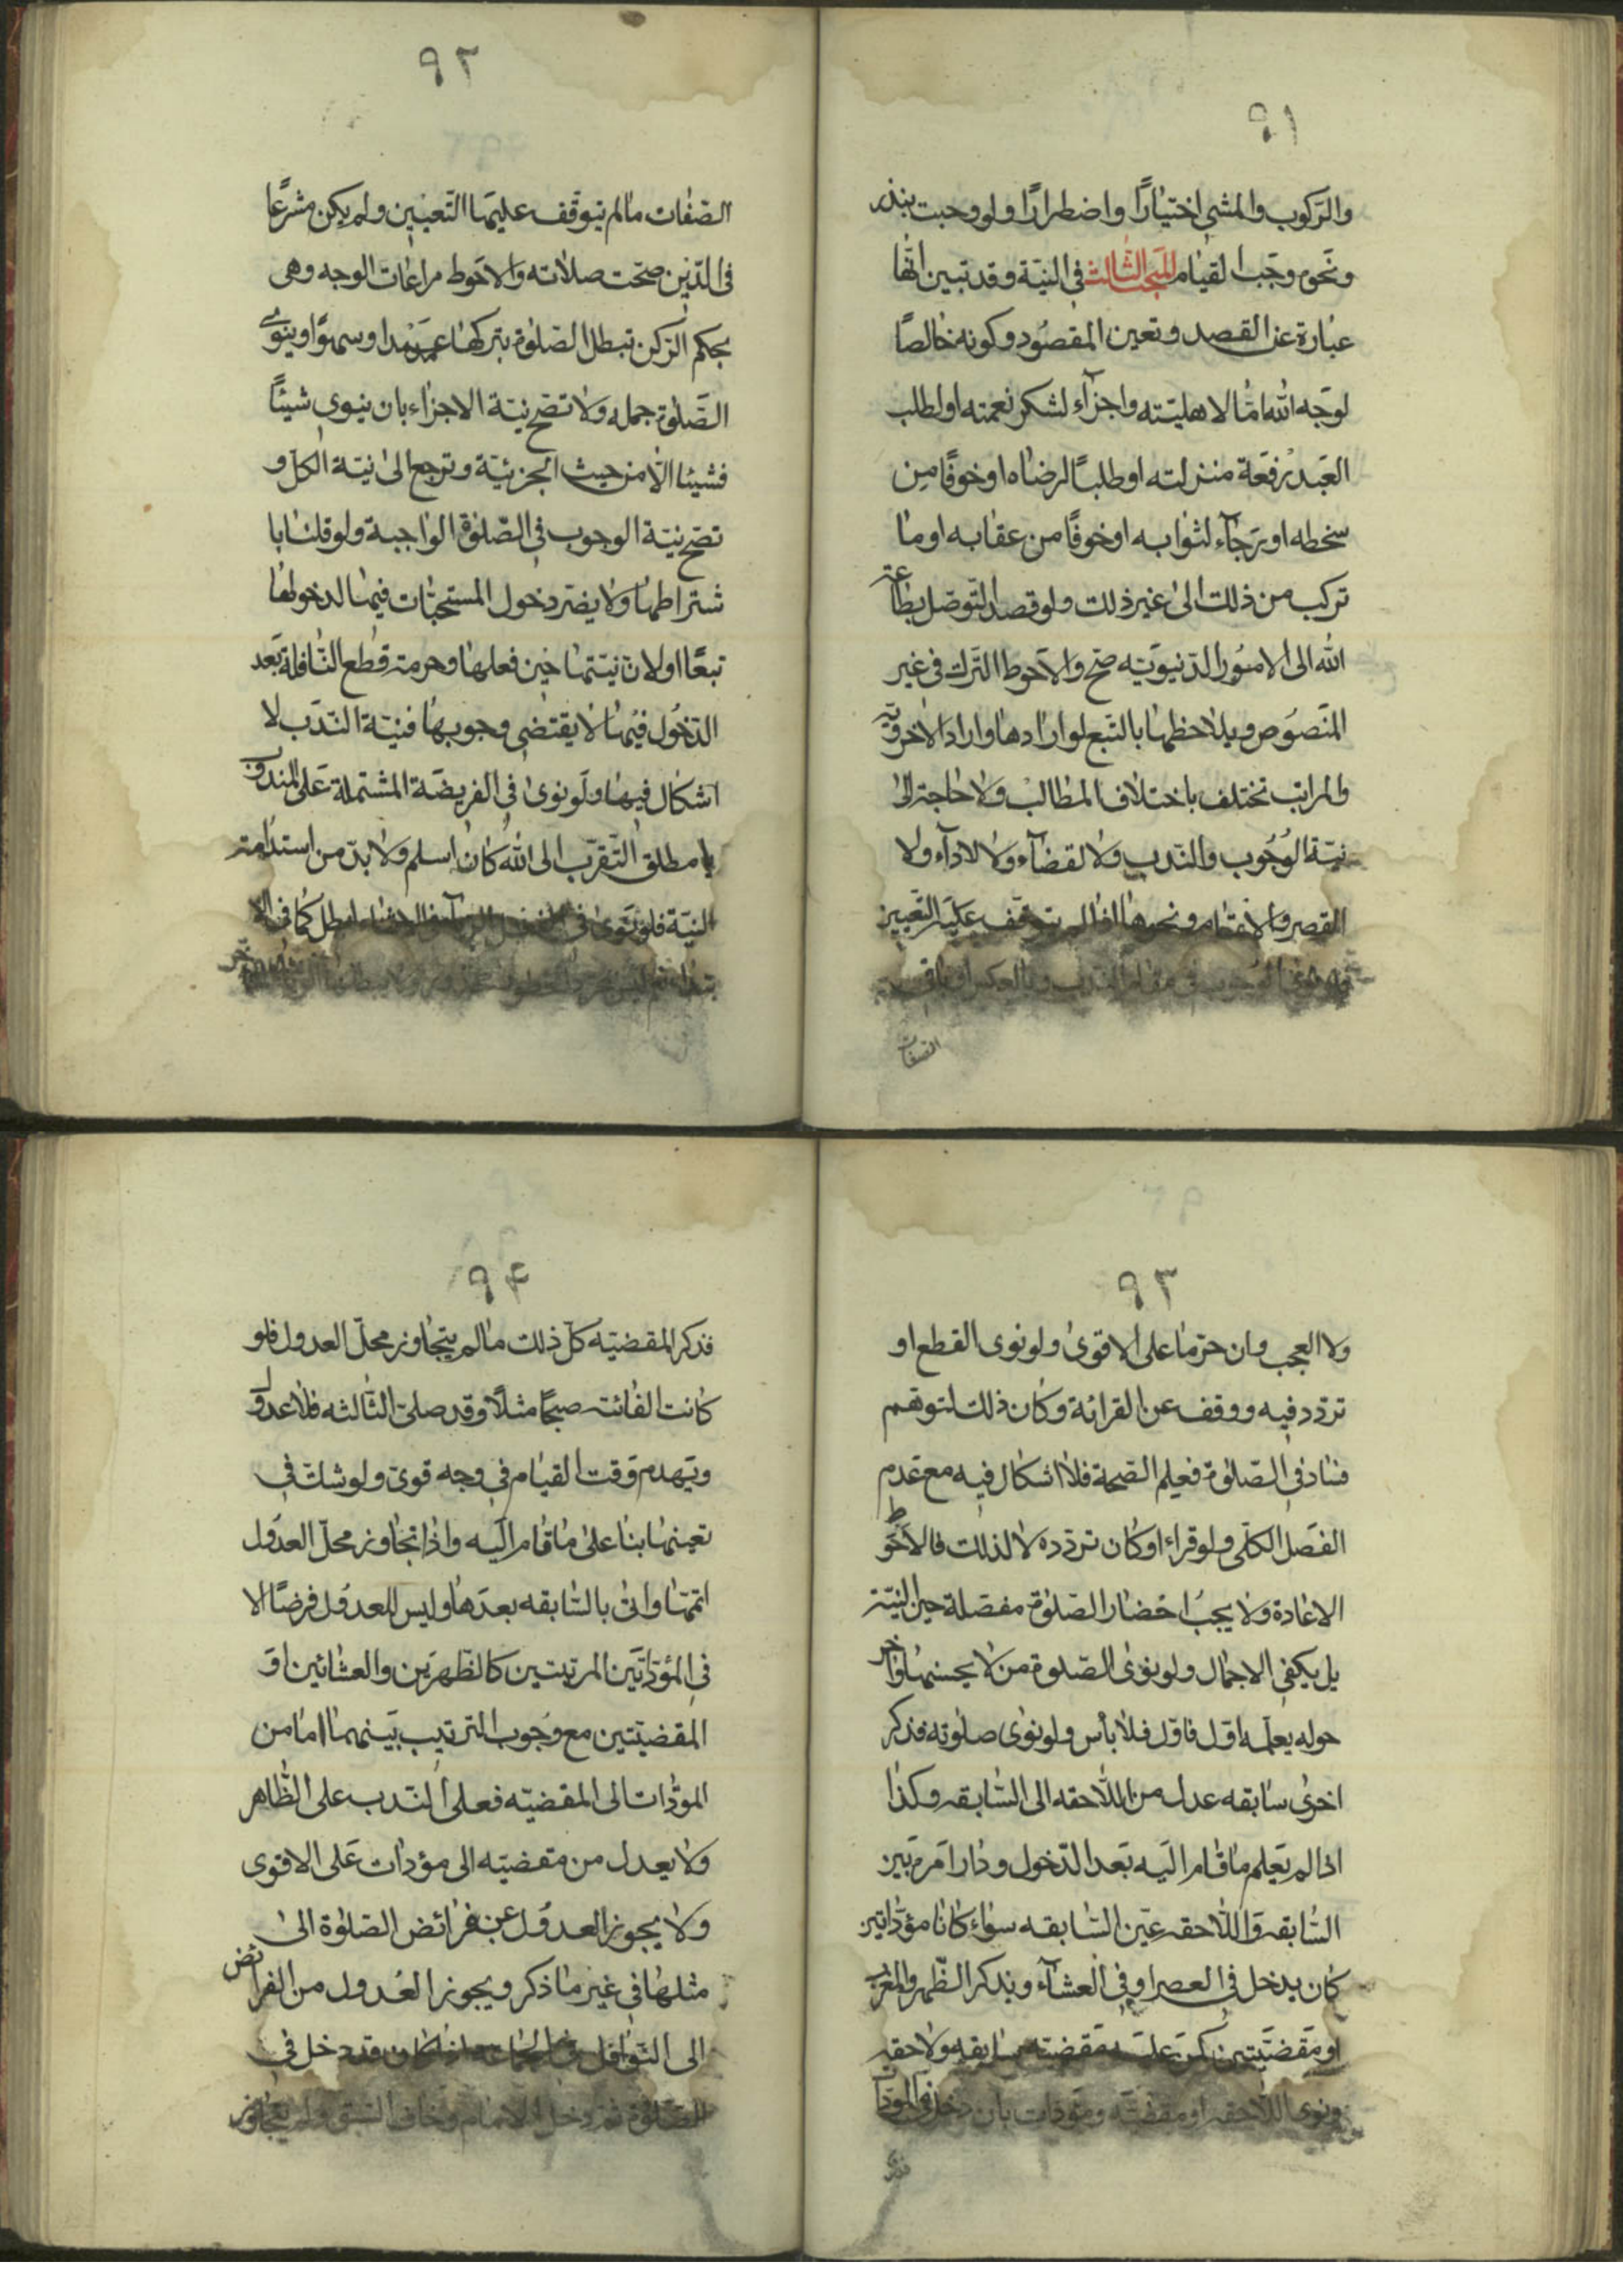 ٩١
والركوب والمشي اختيارًا واضطرارًا ولو وجبت بنذر
ونحوه وجب القيام المبحث الثالث في النية وقد تبين انها
عبارة عن القصد وتعين المقصود وكونه خالصًا
لوجه الله امّا لاهليته واجزآء لشكر نعمته او لطلب
العبد رفعة منزلته او طلبًا لرضاه او خوفًا من
سخطه او رجآء لثوابه او خوفًا من عقابه او ما
تركب من ذلك الى غير ذلك ولو قصد التوصل بطاعة
الله الى الامور الدنيويه صح والاحوط الترك في غير
المنصوص ويلاحظها بالتبع لو ارادها واراد الاخرويه
والمراتب تختلف باختلاف المطالب ولا حاجة الى
نية الوجوب والندب ولا القضآء ولا الادآء ولا
القصر والاتمام ونحوها عليه التعيين
الوجوب في مقام الندب وبالعكس
الصفات
٩٢
الصفات ما لم يتوقف عليها التعيين ولم يكن مشرعًا
في الدين صحت صلاته والاحوط مراعات الوجه وهي
بحكم الركن تبطل الصلوة بتركها عمدا او سهوًا وينوي
الصلوة جمله ولا تصح نية الاجزاء بان ينوي شيئًا
فشيئا الا من حيث الجزئية وترجع الى نية الكل و
تصح نية الوجوب في الصلوة الواجبة ولو قلنا با
شتراطها ولا يضر دخول المستحبات فيها لدخولها
تبعًا او لان نيتها حين فعلها وحرمة قطع النافلة بعد
الدخول فيها لا يقتضي وجوبها فنية الندب لا
اشكال فيها ولو نوى في الفريضة المشتملة على المندوب
مطلق التقرب الى الله كان اسلم ولا بد من استدامة
النية فلو نوى في بطل كما في الا
٩٣
ولا العجب وان حرما على الاقوى ولو نوى القطع او
تردد فيه ووقف عن القرائة وكان ذلك لتوهم
فساد في الصلوة فعلم الصحة فلا اشكال فيه مع عدم
الفصل الكلي ولو قراء او كان تردده لا لذلك فالاحوط
الاعادة ولا يجب احضار الصلوة مفصلة حين النية
بل يكفي الاجمال ولو نوى الصلوة من لا يحسنها واخر
حوله يعلمه اول فاول فلا بأس ولو نوى صلوته فذكر
اخرى سابقه عدل من اللاحقه الى السابقه وكذا
اذا لم يعلم ما قام اليه بعد الدخول ودار امره بين
السابقه واللاحقه عين السابقه سواء كانا مؤداتين
كان يدخل في العصر او في العشآء ويذكر الظهر والمغرب
او مقضيتين كمن عليه مقضيه سابقه ولاحقه
ونوى اللاحقه او مقضيه ومؤدات بان دخل في المؤدات
٩٤
فذكر المقضيه كل ذلك ما لم يتجاوز محل العدول فلو
كانت الفائته صبحًا مثلًا وقد صلى الثالثه فلا عدول
ويهدم وقت القيام في وجه قوي ولو شك في
تعينها بنا على ما قام اليه واذا تجاوز محل العدول
اتمها واتى بالسابقه بعدها وليس العدول فرضًا الا
في المؤداتين المرتبتين كالظهرين والعشائين او
المقضيتين مع وجوب الترتيب بينهما اما من
المؤدات الى المقضيه فعلى الندب على الظاهر
ولا يعدل من مقضيه الى مؤدات على الاقوى
ولا يجوز العدول عن فرائض الصلوة الى
مثلها في غير ما ذكر ويجوز العدول من الفرائض
الى النوافل قد دخل في
الصلوة ثم دخل الامام وخاف السبق ولم يتجاوز